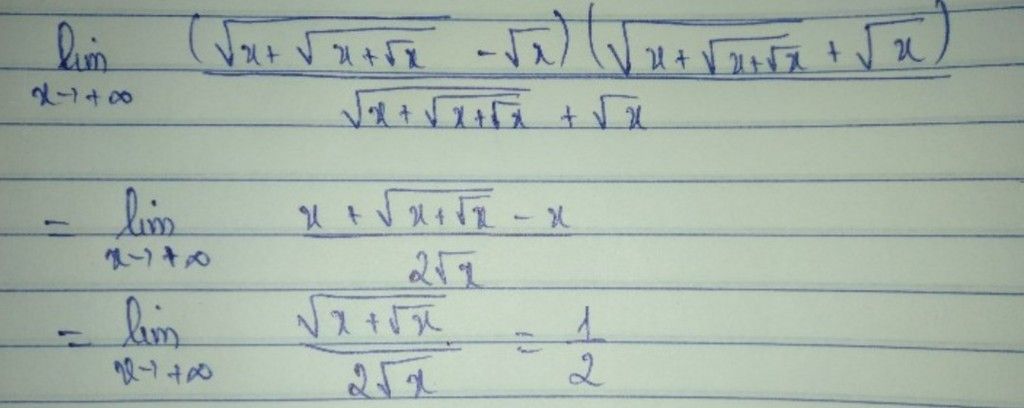 lim x→+∞ (√(x+√(x+√x)) - √x)(√(x+√(x+√x)) + √x) / (√(x+√(x+√x)) + √x)
= lim x→+∞ (x + √(x+√x) - x) / (2√x)
= lim x→+∞ √(x+√x) / (2√x) = 1/2